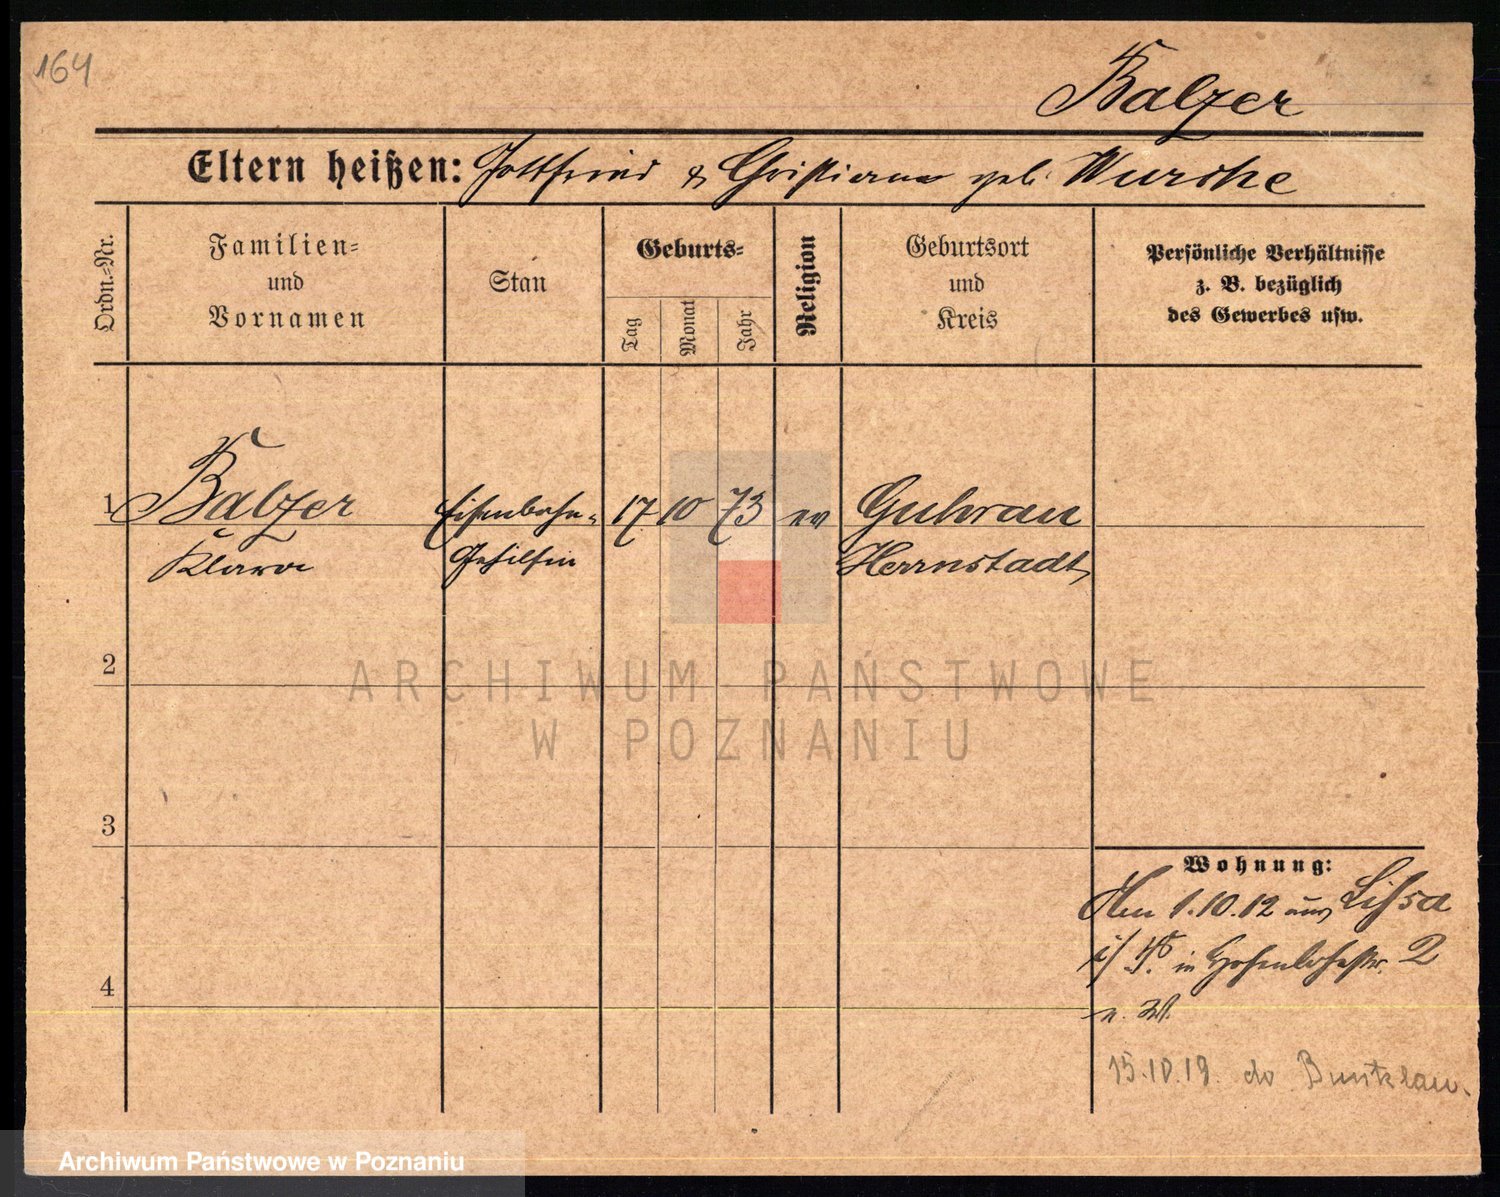 164
Balzer
Eltern heißen: Gottfried & Christiane geb. Wursche
Ordn.=Nr.
Familien= und Vornamen
Stan
Geburts=
Tag
Monat
Jahr
Religion
Geburtsort und Kreis
Persönliche Verhältnisse
z. B. bezüglich
des Gewerbes usw.
1 Balzer Eisenbahn- 17 10 73 ev Guhrau
Klara Gehilfin Herrnstadt
2
3
4
Wohnung:
1.10.12 aus Lissa
i/P. in Hohenlohestr. 2
15.10.19. do Buntzlau.
ARCHIWUM PAŃSTWOWE
W POZNANIU
Archiwum Państwowe w Poznaniu